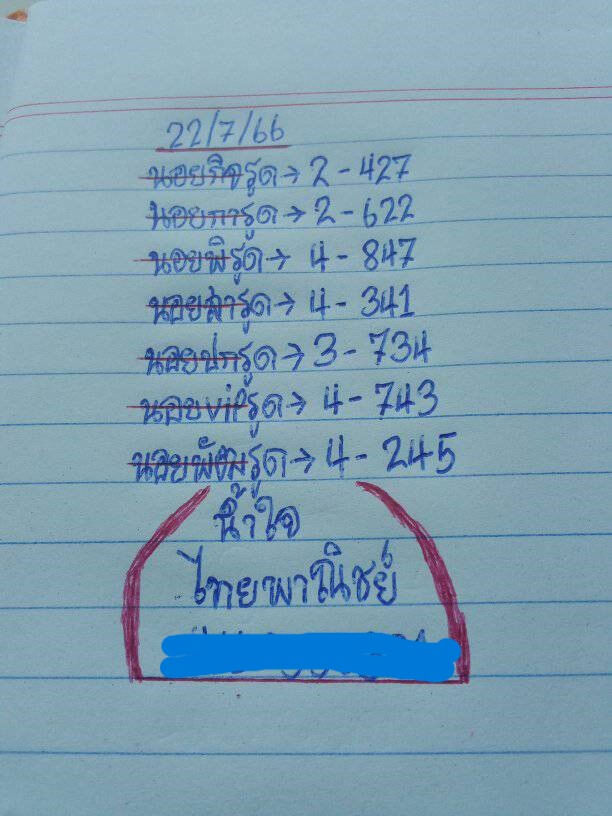 22/7/66
นอยกิจรูด → 2 - 427
นอยการูด → 2 - 622
นอยพิรูด → 4 - 847
รูด → 4 - 341
นอยปกรูด → 3 - 734
นอยvipรูด → 4 - 743
รูด → 4 - 245
น้ำใจ
ไทยพาณิชย์